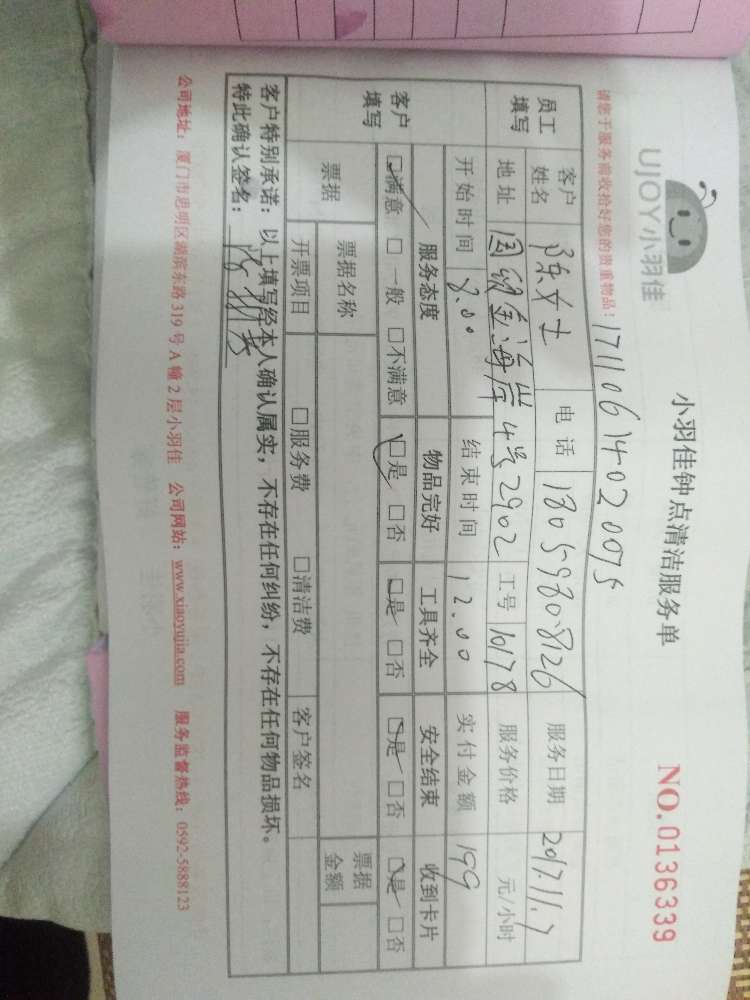 UJOY小羽佳
小羽佳钟点清洁服务单
NO.0136339
请您于服务前收拾好您的贵重物品！
17110614020075
员工填写 客户姓名 陈女士 电话 18059808126 服务日期 2017.11.7
地址 国贸金海岸4号2902 工号 10178 服务价格 元/小时
开始时间 8.00 结束时间 12.00 实付金额 199
客户填写 服务态度 物品完好 工具齐全 安全结束 收到卡片
☑满意 □一般 □不满意 ☑是 □否 ☑是 □否 ☑是 □否 ☑是 □否
票据 票据名称 票据金额
开票项目 □服务费 □清洁费 客户签名
客户特别承诺：以上填写经本人确认属实，不存在任何纠纷，不存在任何物品损坏。
特此确认签名：
公司地址：厦门市思明区湖滨东路319号A幢2层小羽佳 公司网站：www.xiaoyujia.com 服务监督热线：0592-5888123